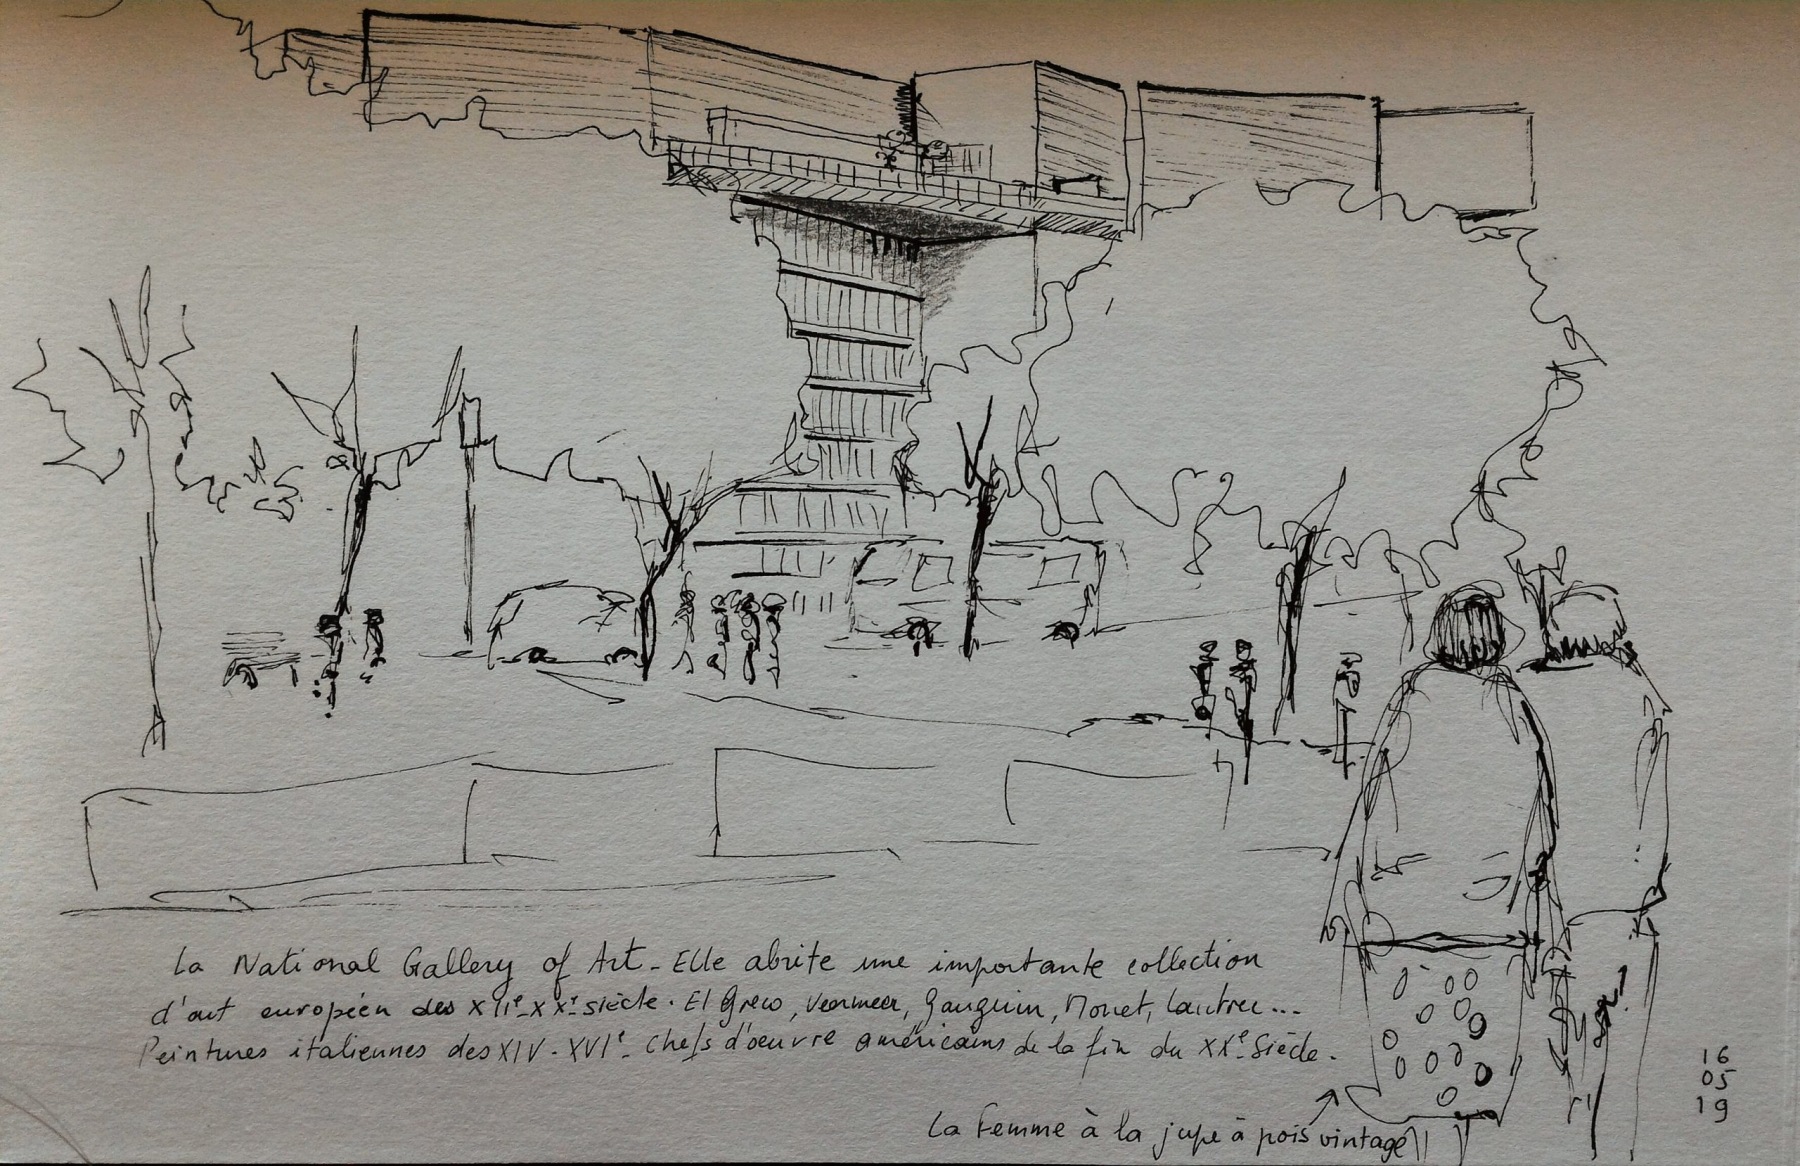 La National Gallery of Art - Elle abrite une importante collection
d'art européen des XIIe-XXe siècle. El Greco, Vermeer, Gauguin, Monet, Lautrec...
Peintures italiennes des XIV-XVIe - Chefs d'oeuvre américains de la fin du XXe Siècle.
La Femme à la jupe à pois vintage
16
05
19